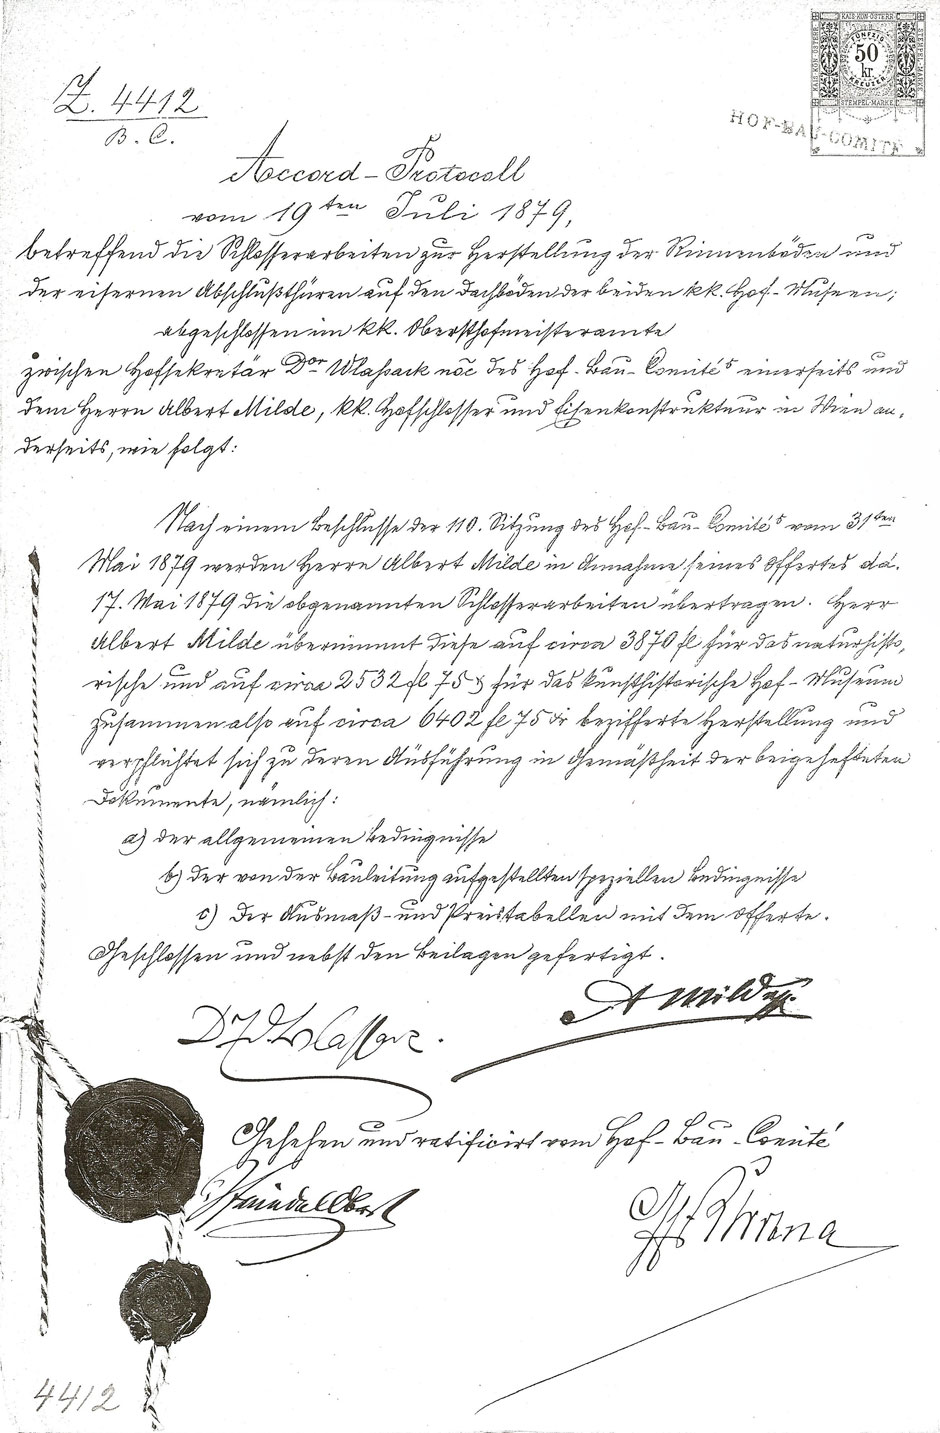 KAIS·KÖN·ÖSTERR·
FÜNFZIG
50
kr.
KREUZER
STEMPEL-MARKE
HOF-BAU-COMITÉ
Z. 4412
B. C.
Accord-Protocoll
vom 19ten Juli 1879,
betreffend die Schlosserarbeiten zur Herstellung der Rinnenböden und
der eisernen Abschlußthüren auf den Dachböden der beiden kk. Hof-Museen;
abgeschlossen im kk. Obersthofmeisteramte
zwischen Hofsekretär Dor Wlassack nōe des Hof-Bau-Comité's einerseits und
dem Herrn Albert Milde, kk. Hofschlosser und Eisenkonstrukteur in Wien an-
derseits, wie folgt:
Nach einem Beschlusse der 110. Sitzung des Hof-Bau-Comité's vom 31ten
Mai 1879 werden Herrn Albert Milde in Annahme seines Offertes dd.
17. Mai 1879 die obgenannten Schlosserarbeiten übertragen. Herr
Albert Milde übernimmt diese auf circa 3870 fl für das naturhisto-
rische und auf circa 2532 fl 75 kr für das kunsthistorische Hof-Museum
zusammen also auf circa 6402 fl 75 kr bezifferte Herstellung und
verpflichtet sich zu deren Ausführung in Gemäßheit der beigehefteten
Dokumente, nämlich:
a) der allgemeinen Bedingnisse
b) der von der Bauleitung aufgestellten speziellen Bedingnisse
c) der Ausmaß- und Preistabellen mit dem Offerte.
Geschlossen und nebst den Beilagen gefertigt.
A Milde
Wlassack
Gesehen und ratificirt vom Hof-Bau-Comité
4412